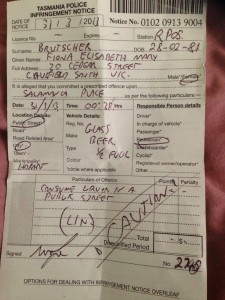 TASMANIA POLICE
INFRINGEMENT NOTICE
DATE OF NOTICE 3/1/2013 Notice No. 0102 0913 9004
Licence No. Expires Station R POS
Surname BRUTSCHER DOB 28-02-81
Given Names FIONA ELISABETH MARY
Full Address 20 STREET
SOUTH VIC. Male/Female
It is alleged that you committed a prescribed offence
at SALAMANCA PLACE as per the following particulars:
Date 3/1/13 Time 00:28 hrs
Location Details: Vehicle Details: Responsible Person details
Public Street Reg. No. Driver
Road Make GLASS In charge of vehicle
Road Related Area Body BEER Passenger
Colour 1/2 FULL Pedestrian
Cyclist
Municipality *code where applicable Registered owner/operator
HOBART Other
Particulars of Offence Points Penalty
CONSUME LIQUOR IN A
PUBLIC STREET
(LIN)
CAUTION
Total
Discounted Period
Signed No. 2748
OPTIONS FOR DEALING WITH INFRINGEMENT NOTICE OVERLEAF